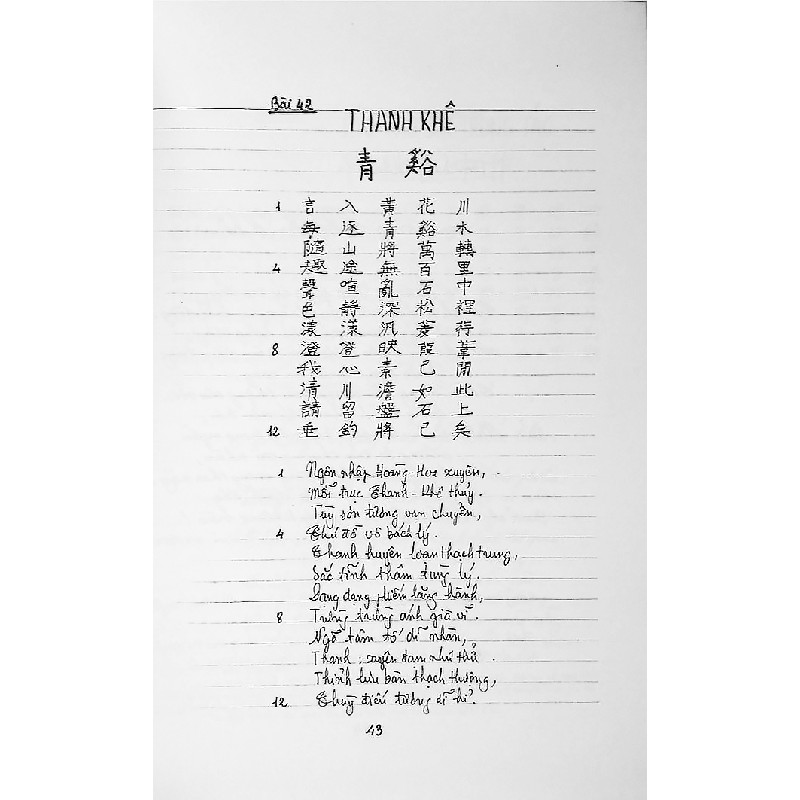 Bài 42
THANH KHÊ
青 谿
1 言 入 黃 花 川
每 逐 青 谿 水
隨 山 將 萬 轉
4 趣 途 無 百 里
聲 喧 亂 石 中
色 靜 深 松 裡
漾 漾 汎 菱 荇
8 澄 澄 映 葭 葦
我 心 素 已 閒
清 川 澹 如 此
請 留 盤 石 上
12 垂 釣 將 已 矣
1 Ngôn nhập Hoàng Hoa xuyên,
Mỗi trục Thanh-Khê thủy.
Tùy sơn tương vạn chuyển,
4 Thú đồ vô bách lý.
Thanh huyên loạn thạch trung,
Sắc tĩnh thâm tùng lý.
Dạng dạng phiếm lăng hành,
8 Trừng trừng ánh gia vĩ.
Ngã tâm tố dĩ nhàn,
Thanh xuyên đạm như thử.
Thỉnh lưu bàn thạch thượng,
12 Thùy điếu tương dĩ hĩ.
43